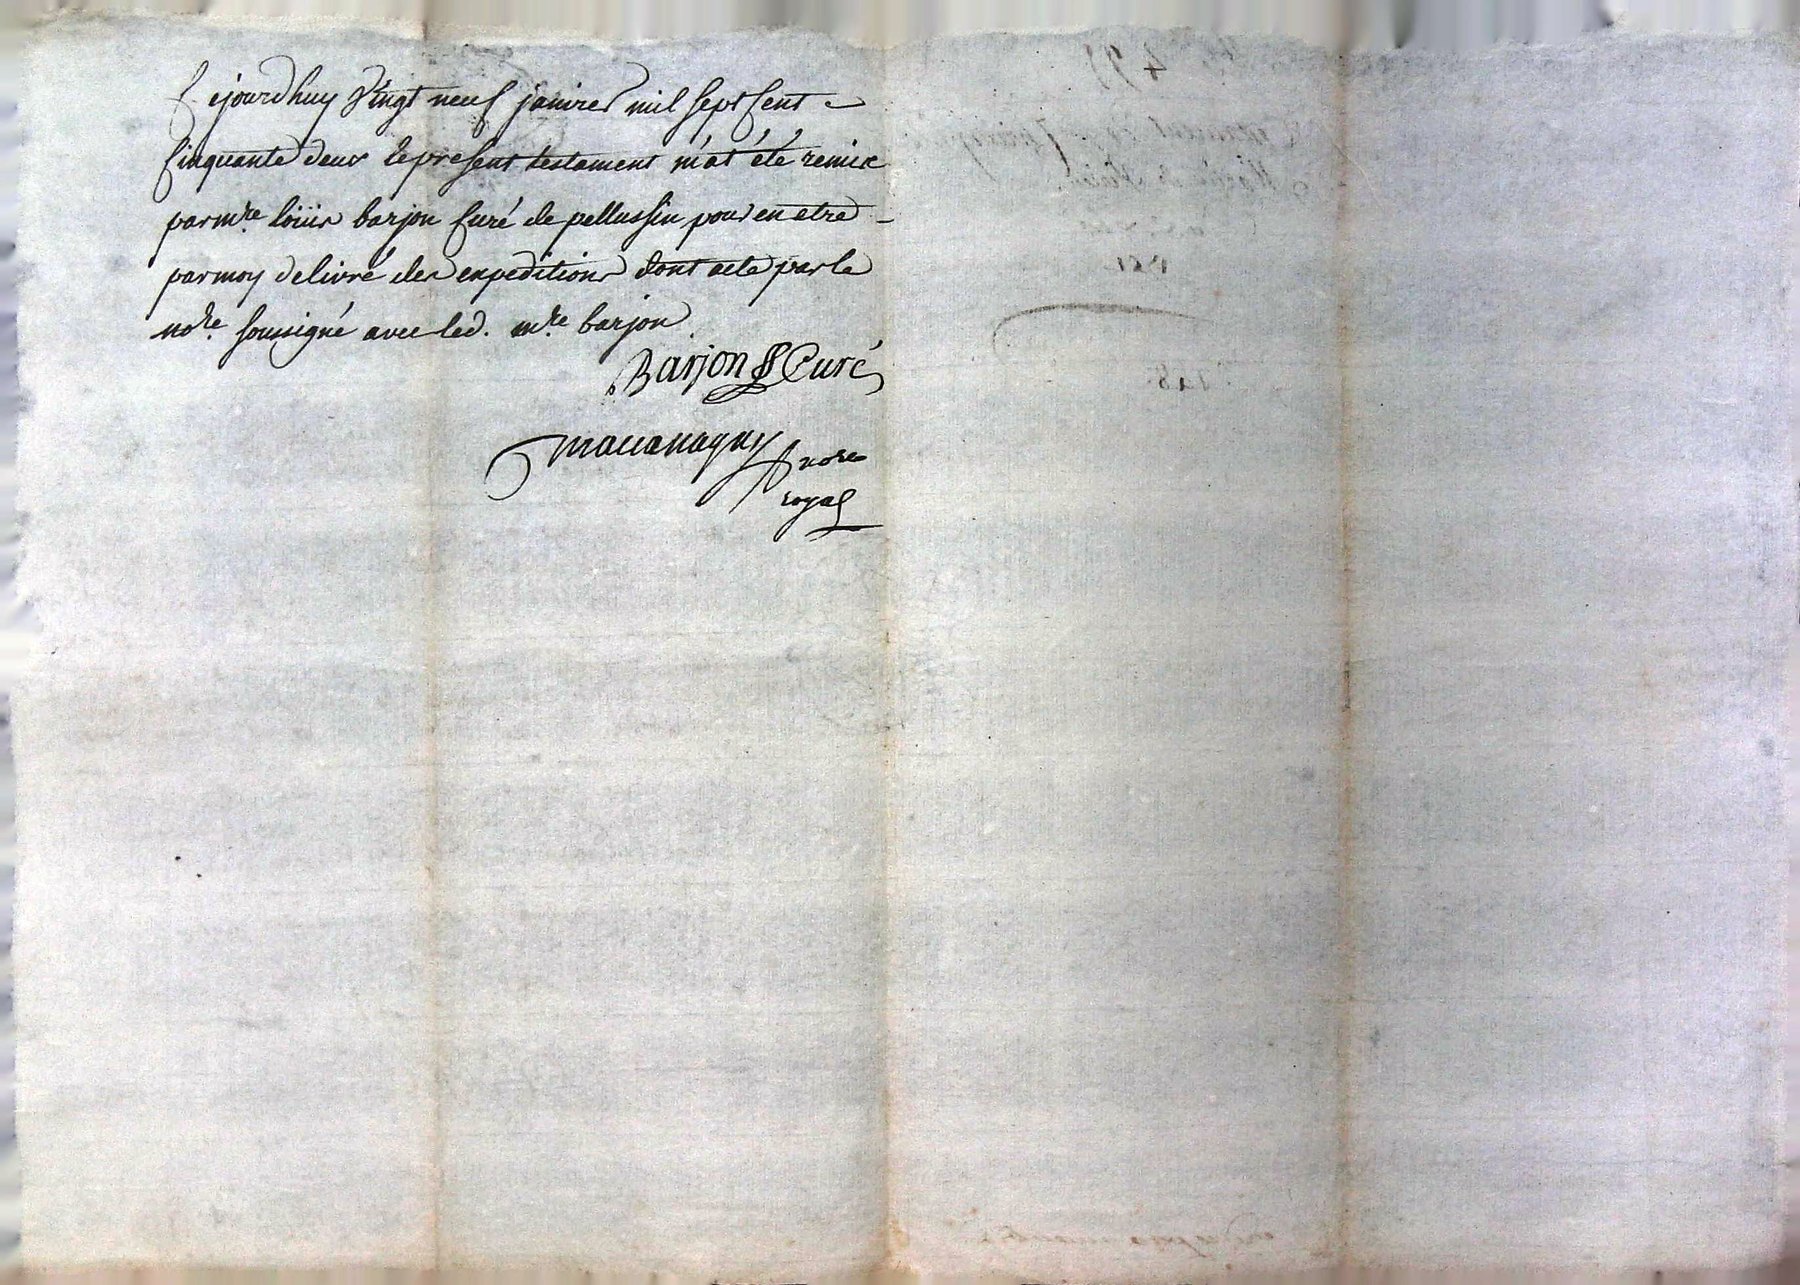 Cejourdhuy Vingt neuf janvier mil sept Cent
Cinquante deux le present testament m'at été remise
par mre loüis barjon Curé de pellussin pour en etre
par moy delivré des expeditions dont acte par le
nore soussigné avec led. mre barjon
Barjon Curé
nore
royal